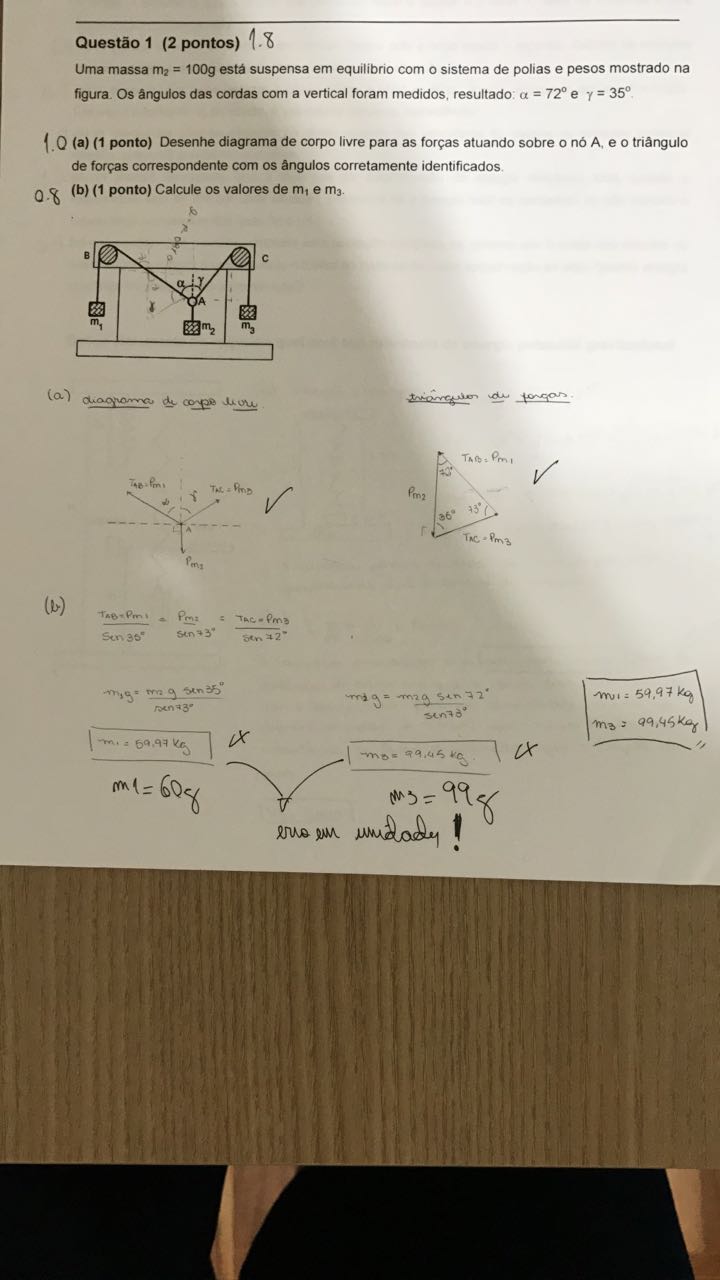 Questão 1 (2 pontos) 1.8
Uma massa m₂ = 100g está suspensa em equilíbrio com o sistema de polias e pesos mostrado na
figura. Os ângulos das cordas com a vertical foram medidos, resultado: α = 72º e γ = 35º.
1.0 (a) (1 ponto) Desenhe diagrama de corpo livre para as forças atuando sobre o nó A, e o triângulo
de forças correspondente com os ângulos corretamente identificados.
0.8 (b) (1 ponto) Calcule os valores de m₁ e m₃.
B α γ C
A
m₁ m₂ m₃
(a) diagrama de corpo livre
triângulos de forças.
TAB=Pm1 α γ TAC=Pm3
A
Pm2
72° TAB=Pm1
Pm2
35° 73°
TAC=Pm3
(b)
TAB=Pm1 / sen 35° = Pm2 / sen 73° = TAC=Pm3 / sen 72°
m1g = m2 g sen 35° / sen 73°
m3g = m2g sen 72° / sen 73°
m1 = 59,97 kg
m3 = 99,45 kg
m1 = 59,97 kg
m3 = 99,45 kg
m1 = 60g
m3 = 99g
erro em unidady!